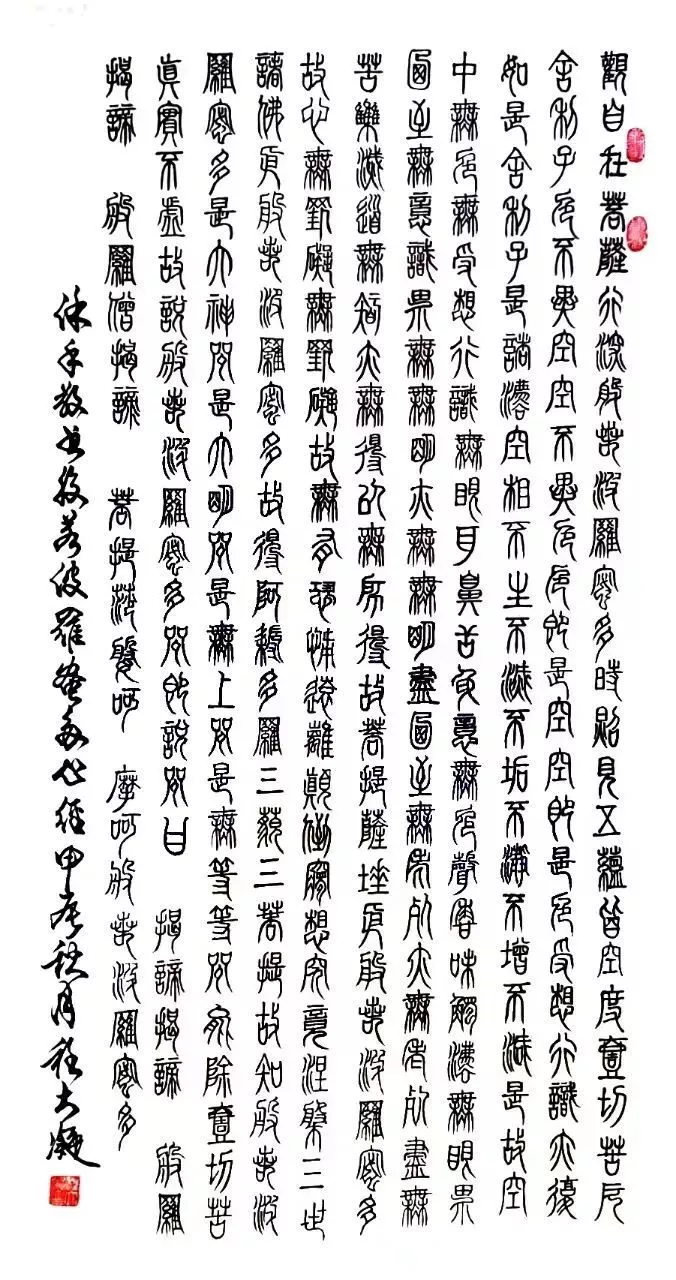 觀自在菩薩行深般若波羅蜜多時照見五蘊皆空度壹切苦厄
舍利子色不異空空不異色色即是空空即是色受想行識亦復
如是舍利子是諸灋空相不生不滅不垢不淨不增不減是故空
中無色無受想行識無眼耳鼻舌身意無色聲香味觸灋無眼界
乃至無意識界無無明亦無無明盡乃至無老死亦無老死盡無
苦集滅道無智亦無得以無所得故菩提薩埵依般若波羅蜜多
故心無罣礙無罣礙故無有恐怖遠離顛倒夢想究竟涅槃三世
諸佛依般若波羅蜜多故得阿耨多羅三藐三菩提故知般若波
羅蜜多是大神咒是大明咒是無上咒是無等等咒能除壹切苦
真實不虛故說般若波羅蜜多咒即說咒曰 揭諦揭諦 般羅
揭諦 般羅僧揭諦 菩提薩婆訶 摩訶般若波羅蜜多
沐手敬書般若波羅蜜多心經甲辰秋月